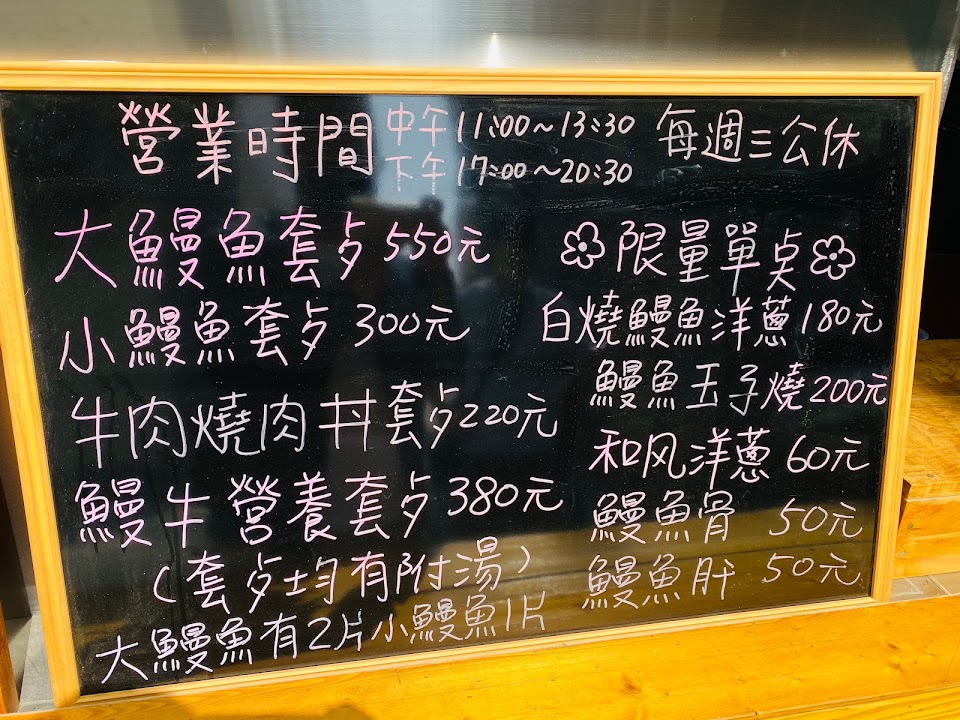 營業時間 中午11:00~13:30 每週三公休
下午17:00~20:30
大鰻魚套歺550元
小鰻魚套歺300元
牛肉燒肉丼套歺220元
鰻牛營養套歺380元
(套歺均有附湯)
大鰻魚有2片小鰻魚1片
限量單点
白燒鰻魚洋蔥180元
鰻魚玉子燒200元
和风洋蔥60元
鰻魚骨 50元
鰻魚肝 50元